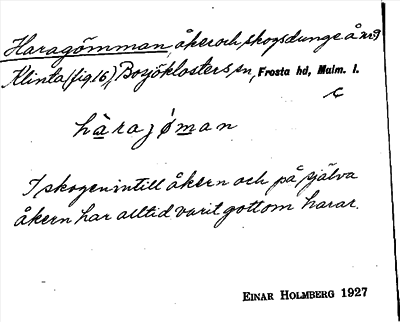 Haragömman, åker och skogsdunge å nr 9
Klinta (fig 16), Bosjöklosters sn, Frosta hd, Malm. l.
C
hàrajǿman
I skogen intill åkern och på själva
åkern har alltid varit gott om harar.
EINAR HOLMBERG 1927